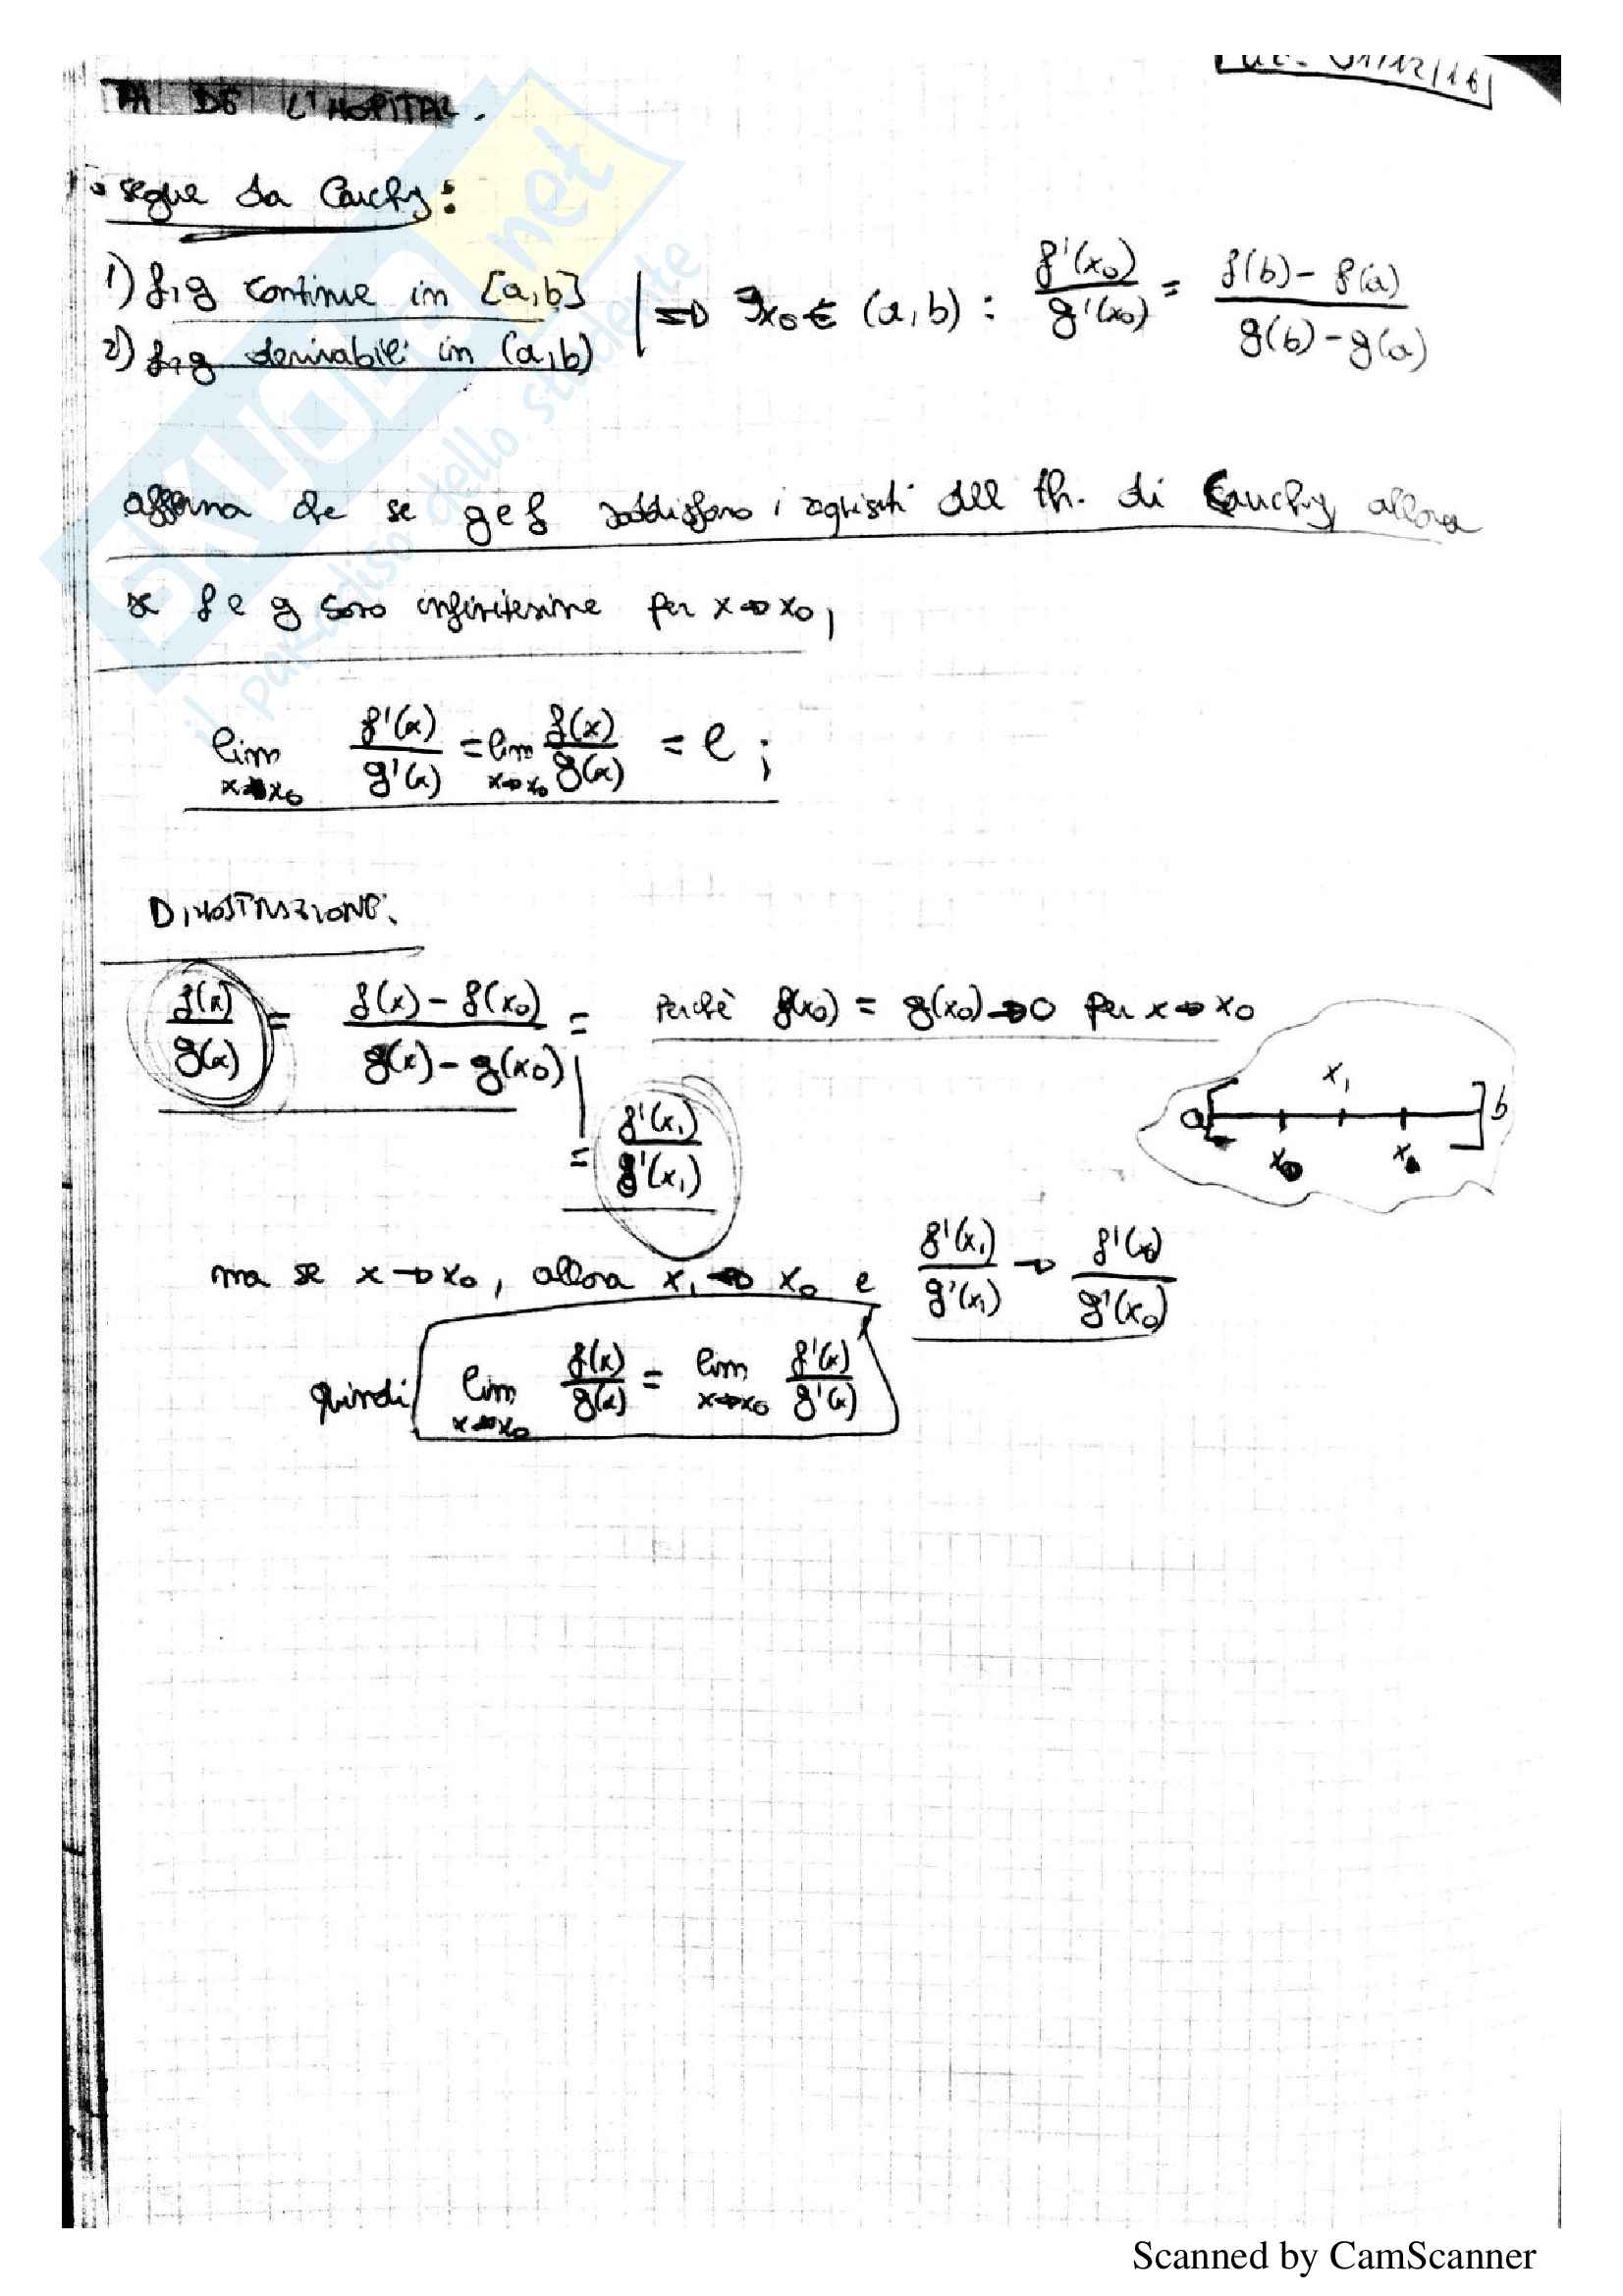 01/12/16
TH DE L'HOPITAL.
• segue da Cauchy:
1) f,g continue in [a,b]
2) f,g derivabili in (a,b)
=> ∃x₀ ∈ (a,b) : f'(x₀)/g'(x₀) = f(b)-f(a)/g(b)-g(a)
afferma che se g e f soddisfano i requisiti dell th. di Cauchy allora
se f e g sono infinitesime per x→x₀,
lim x→x₀ f'(x)/g'(x) = lim x→x₀ f(x)/g(x) = l ;
DIMOSTRAZIONE.
f(x)/g(x) = f(x)-f(x₀)/g(x)-g(x₀) = perchè f(x₀) = g(x₀)→0 per x→x₀
= f'(x₁)/g'(x₁)
a x₀ x₁ x b
ma se x→x₀, allora x₁→x₀ e f'(x₁)/g'(x₁) → f'(x₀)/g'(x₀)
quindi lim x→x₀ f(x)/g(x) = lim x→x₀ f'(x)/g'(x)
SKUOLA.net
il paradiso dello studente
Scanned by CamScanner